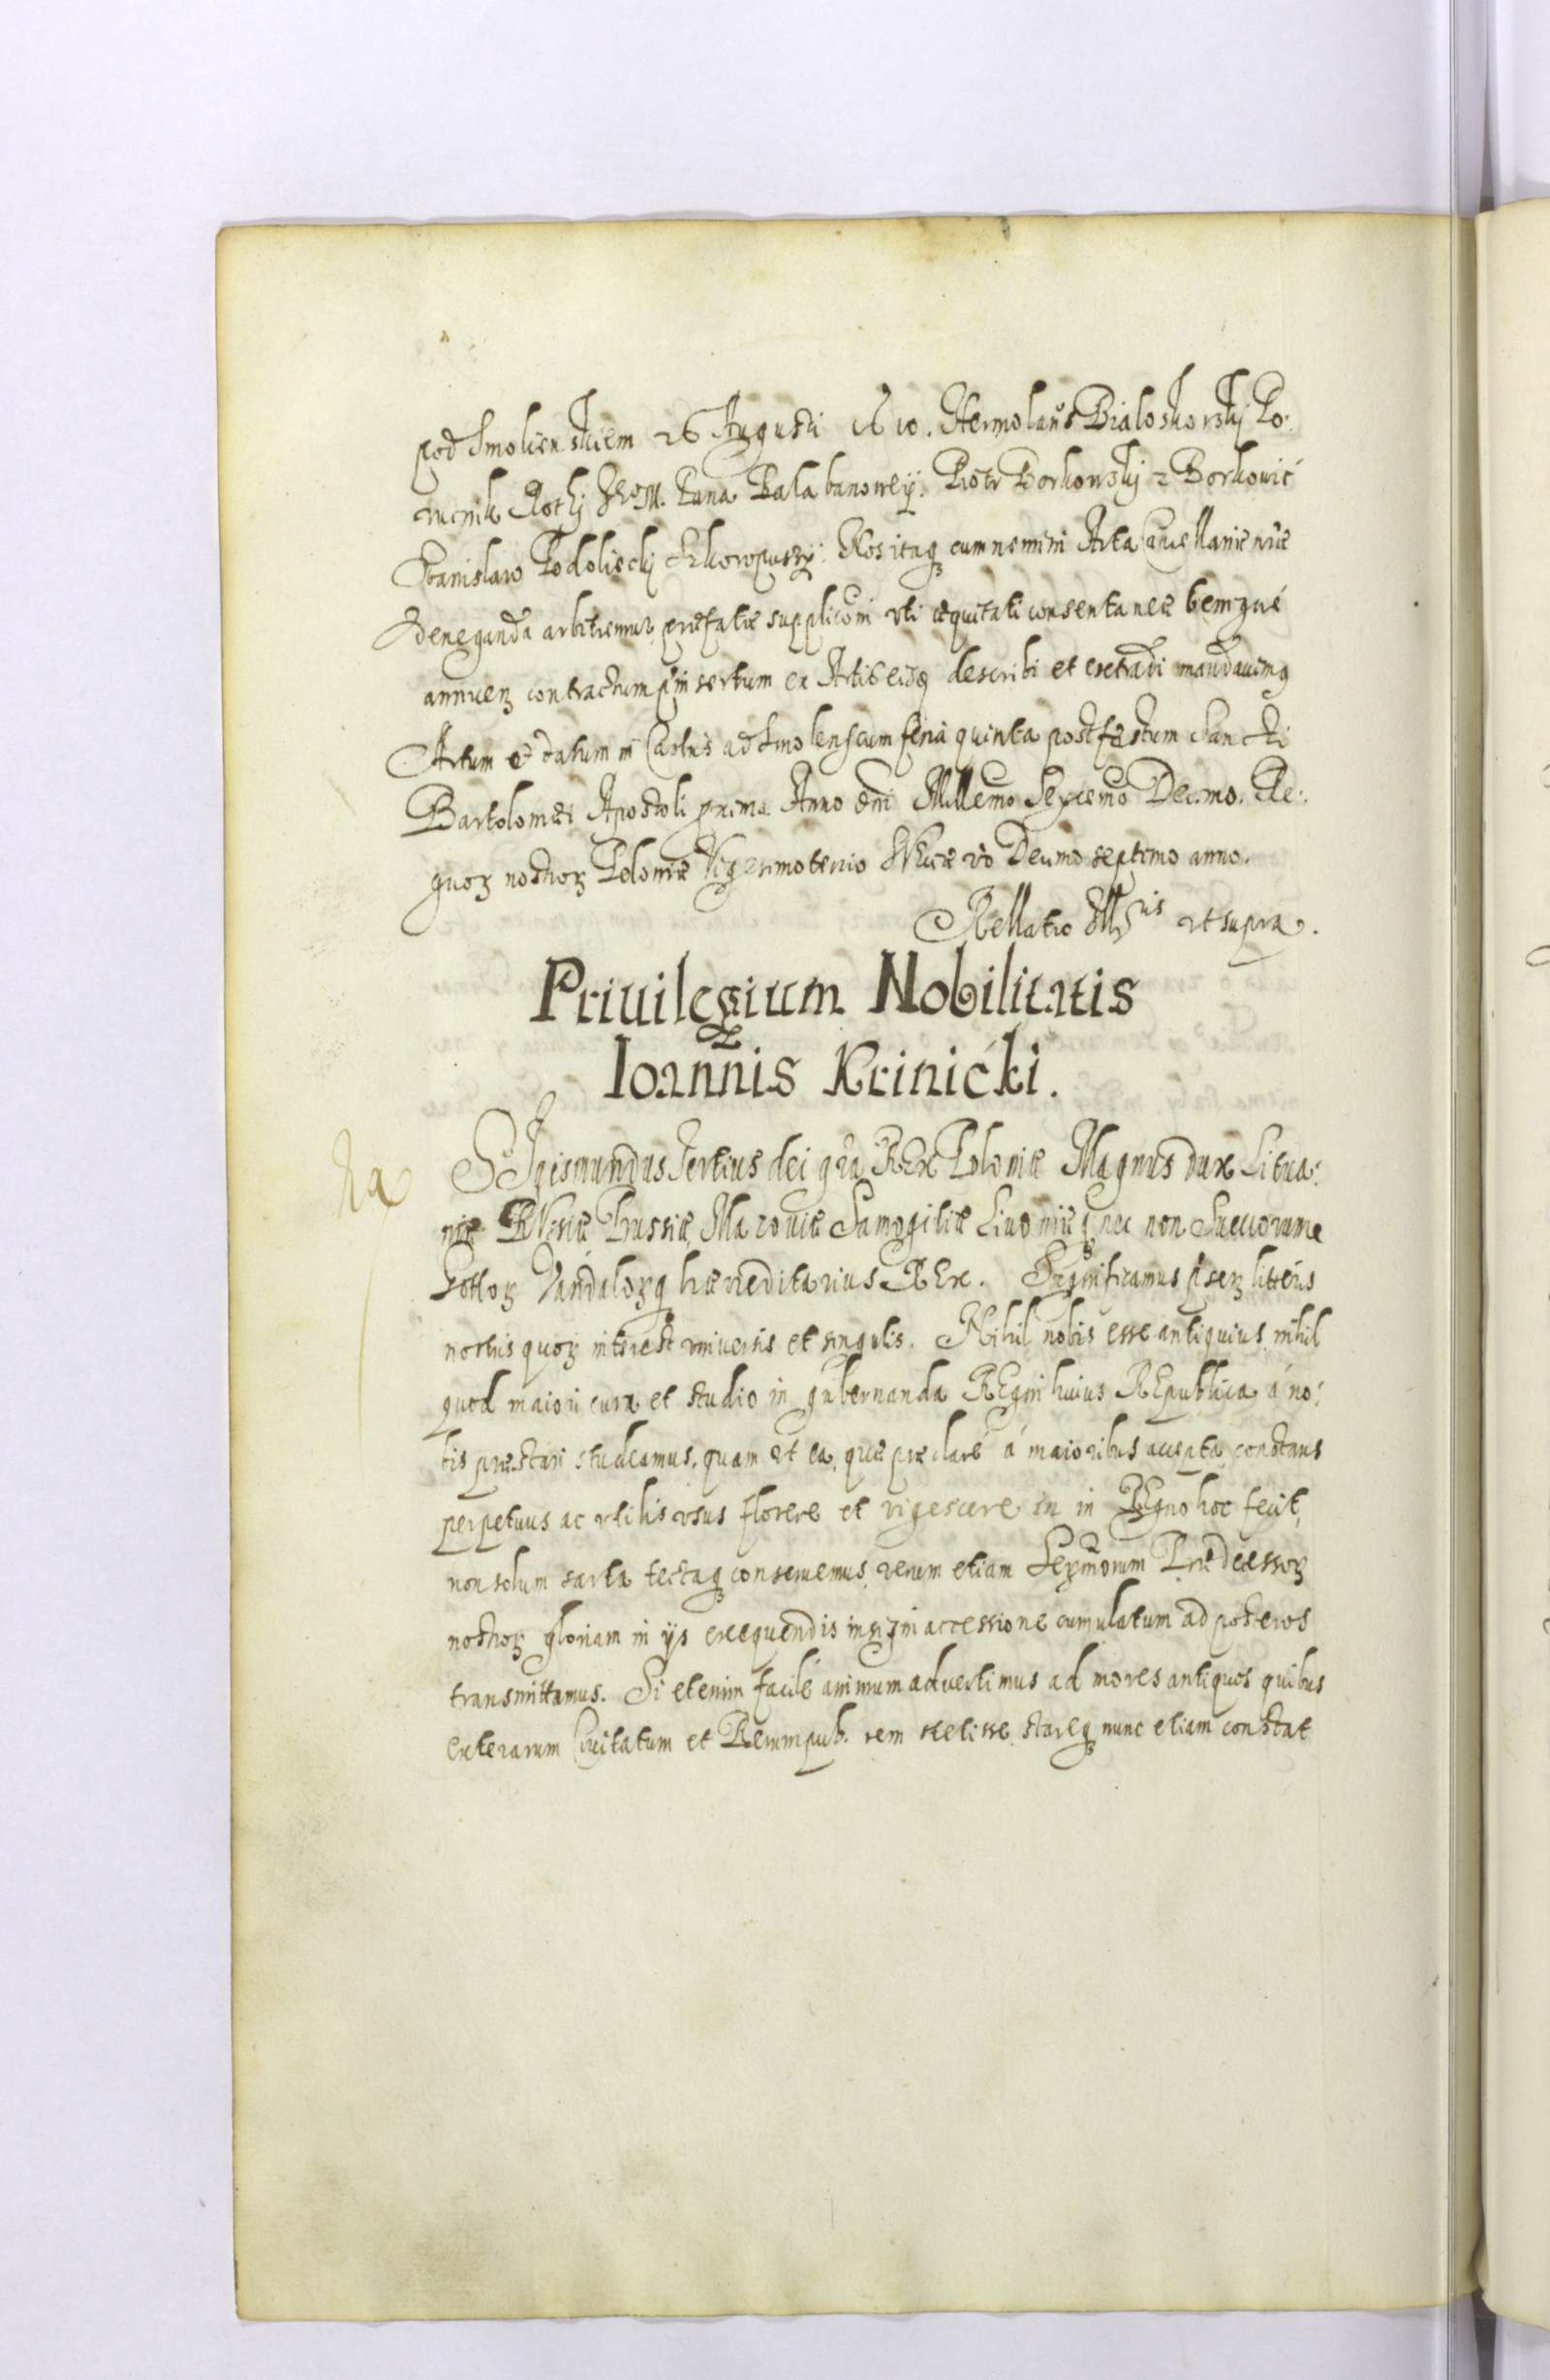 pod Smolienskiem 26 Augusti 1610. Hermolaus Bialoskorskij Po:
rucznik Rothj Je°M. Pana Balabanowey. Piotr Borkowskj z Borkowic
Stanislaw Podolieckj Nos itaq cum nemini Acta Cancellariae nrae
deneganda arbitremur, praefatae suppliconi uti aequitati consentaneae benigne
annuen contractum pinsertum ex Actis eisdq describi et extradi mandauimq
Actum et datum in Castris ad Smolenscum feria quinta post festum Sancti
Bartolomaei Apostoli prima Anno dni Millemo Sexcemo Decimo. Re:
gnoꝝ nostroꝝ Poloniae Vigesimotertio Sueciae vo Decimo septimo anno.
Rellatio ut supra.
Priuilegium Nobilitatis
Ioannis Krinicki.
SIgismundus Tertius dei gra REx Poloniae Magnus dux Litua:
niae RVssiae Prussiae, Mazouiae Samogitiae Liuoniaeq nec non Sueccorum
Gottoꝝ Vandaloꝝq haereditarius REx. Significamus psen litteris
nostris quoꝝ interest uniuersis et singulis. Nihil nobis esse antiquius, nihil
quod maiori cura et studio in gubernanda REgni huius REpublica á no:
bis praestari studeamus, quam ut ea, quae praeclaré á maioribus accepta, constans
perpetuus ac utilis usus florere et vigescere in in REgno hoc fecit,
non solum sarta tectaq conseruemus, verum etiam Seꝝmorum Praedecessoꝝ
nostroꝝ gloriam in ijs exequendis insigni accessione cumulatum ad posteros
transmittamus. Si etenim facilé animum aduertimus ad mores antiquos quibus
exterarum Ciuitatum et Rerumpub. rem stetisse, stareq nunc etiam constat